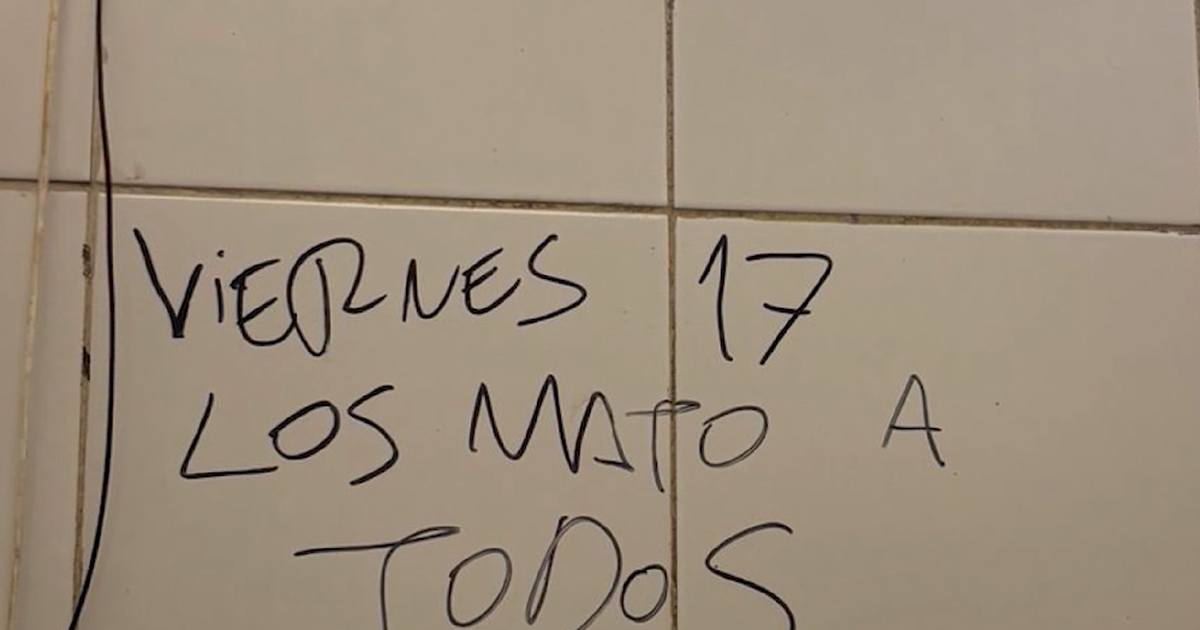 ViERNES 17
LOS MATO A
TODOS